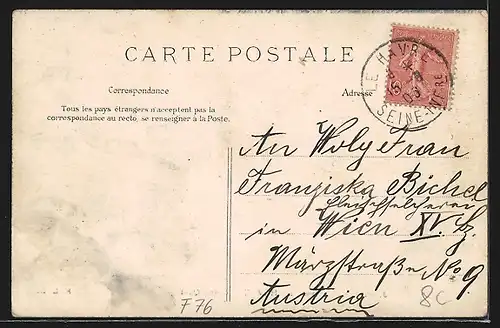 CARTE POSTALE
Correspondance
Tous les pays étrangers n'acceptent pas la
correspondance au recto, se renseigner à la Poste.
Adresse
LE HAVRE
SEINE-INFRE
An Wolg Frau
Franziska Bichel
in Wien XV. Bz.
Märzstraße No 9.
Austria
F76
8C